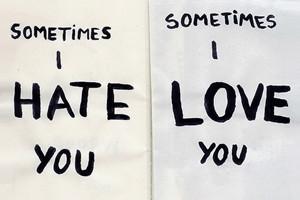 SOMETiMES
I
HATE
YOU
SOMETiMES
I
LOVE
YOU